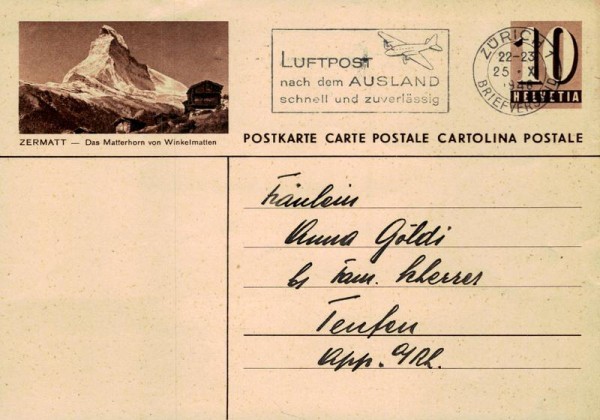 LUFTPOST
nach dem AUSLAND
schnell und zuverlässig
ZÜRICH 1
22-23
25. X.
BRIEFVERSAND
10
HELVETIA
ZERMATT — Das Matterhorn von Winkelmatten
POSTKARTE CARTE POSTALE CARTOLINA POSTALE
Fräulein
Anna Göldi
bs Fam. Scherrer
Teufen
App. A/Rh.